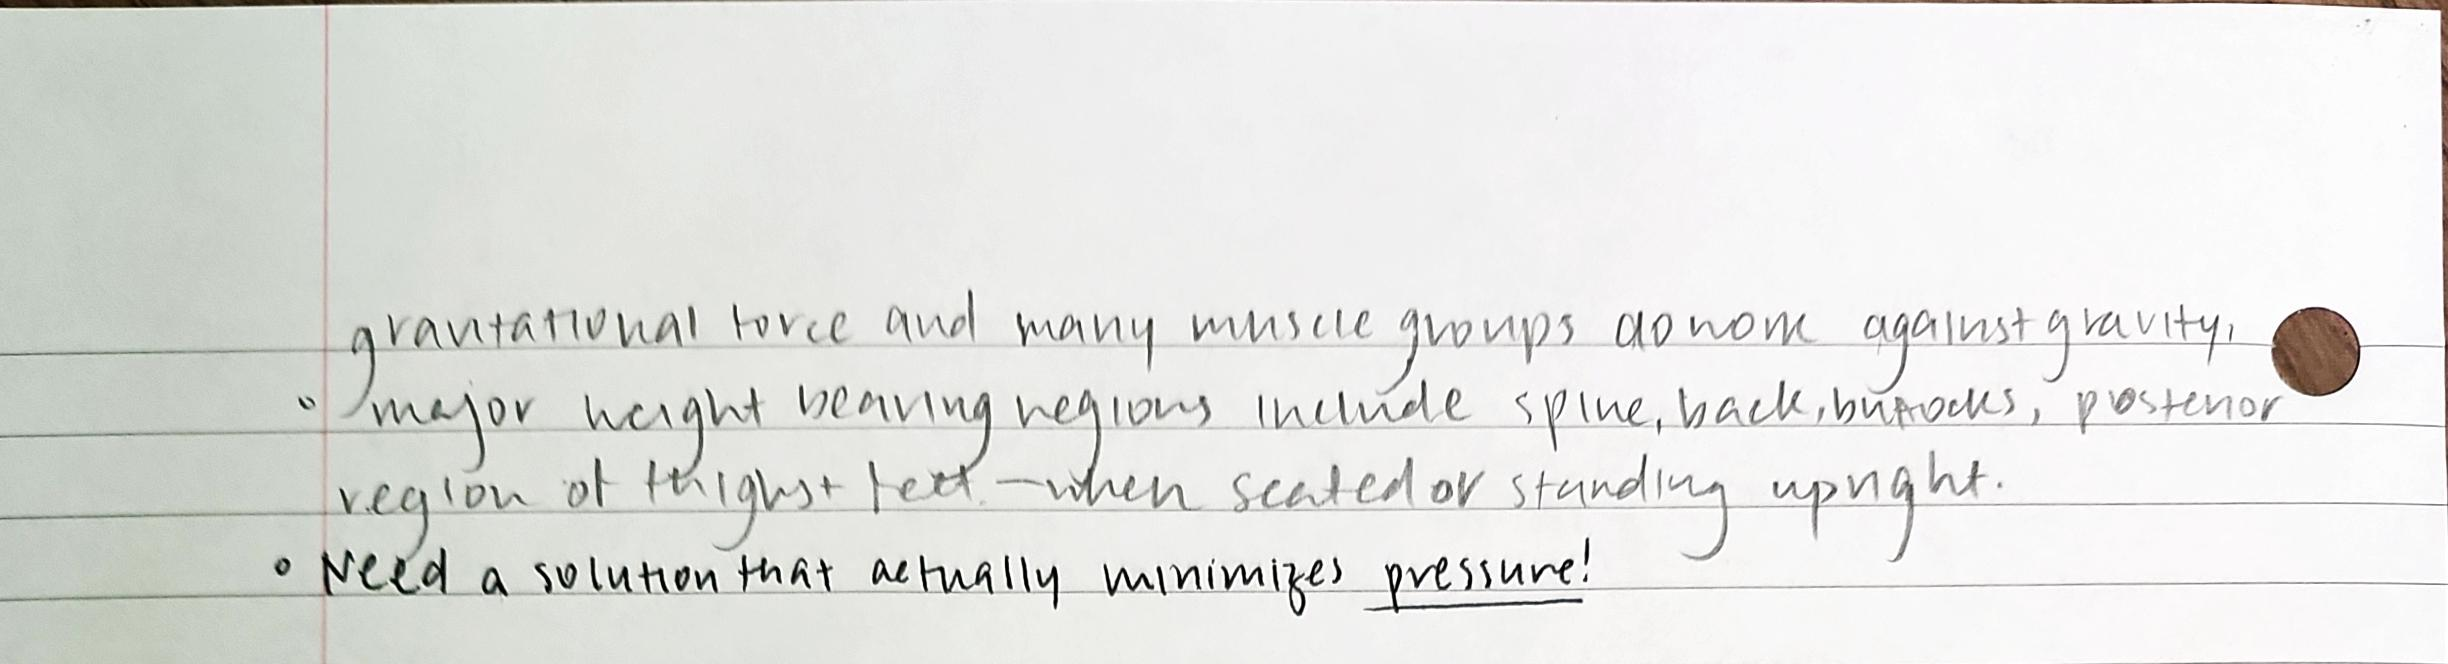 gravitational force and many muscle groups do work against gravity.
• major weight bearing regions include spine, back, buttocks, posterior
region of thighs + feet - when seated or standing upright.
• Need a solution that actually minimizes pressure!